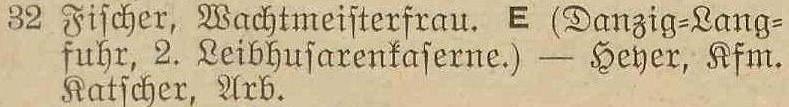 32 Fischer, Wachtmeisterfrau. E (Danzig-Lang-
fuhr, 2. Leibhusarenkaserne.) — Heyer, Kfm.
Katscher, Arb.